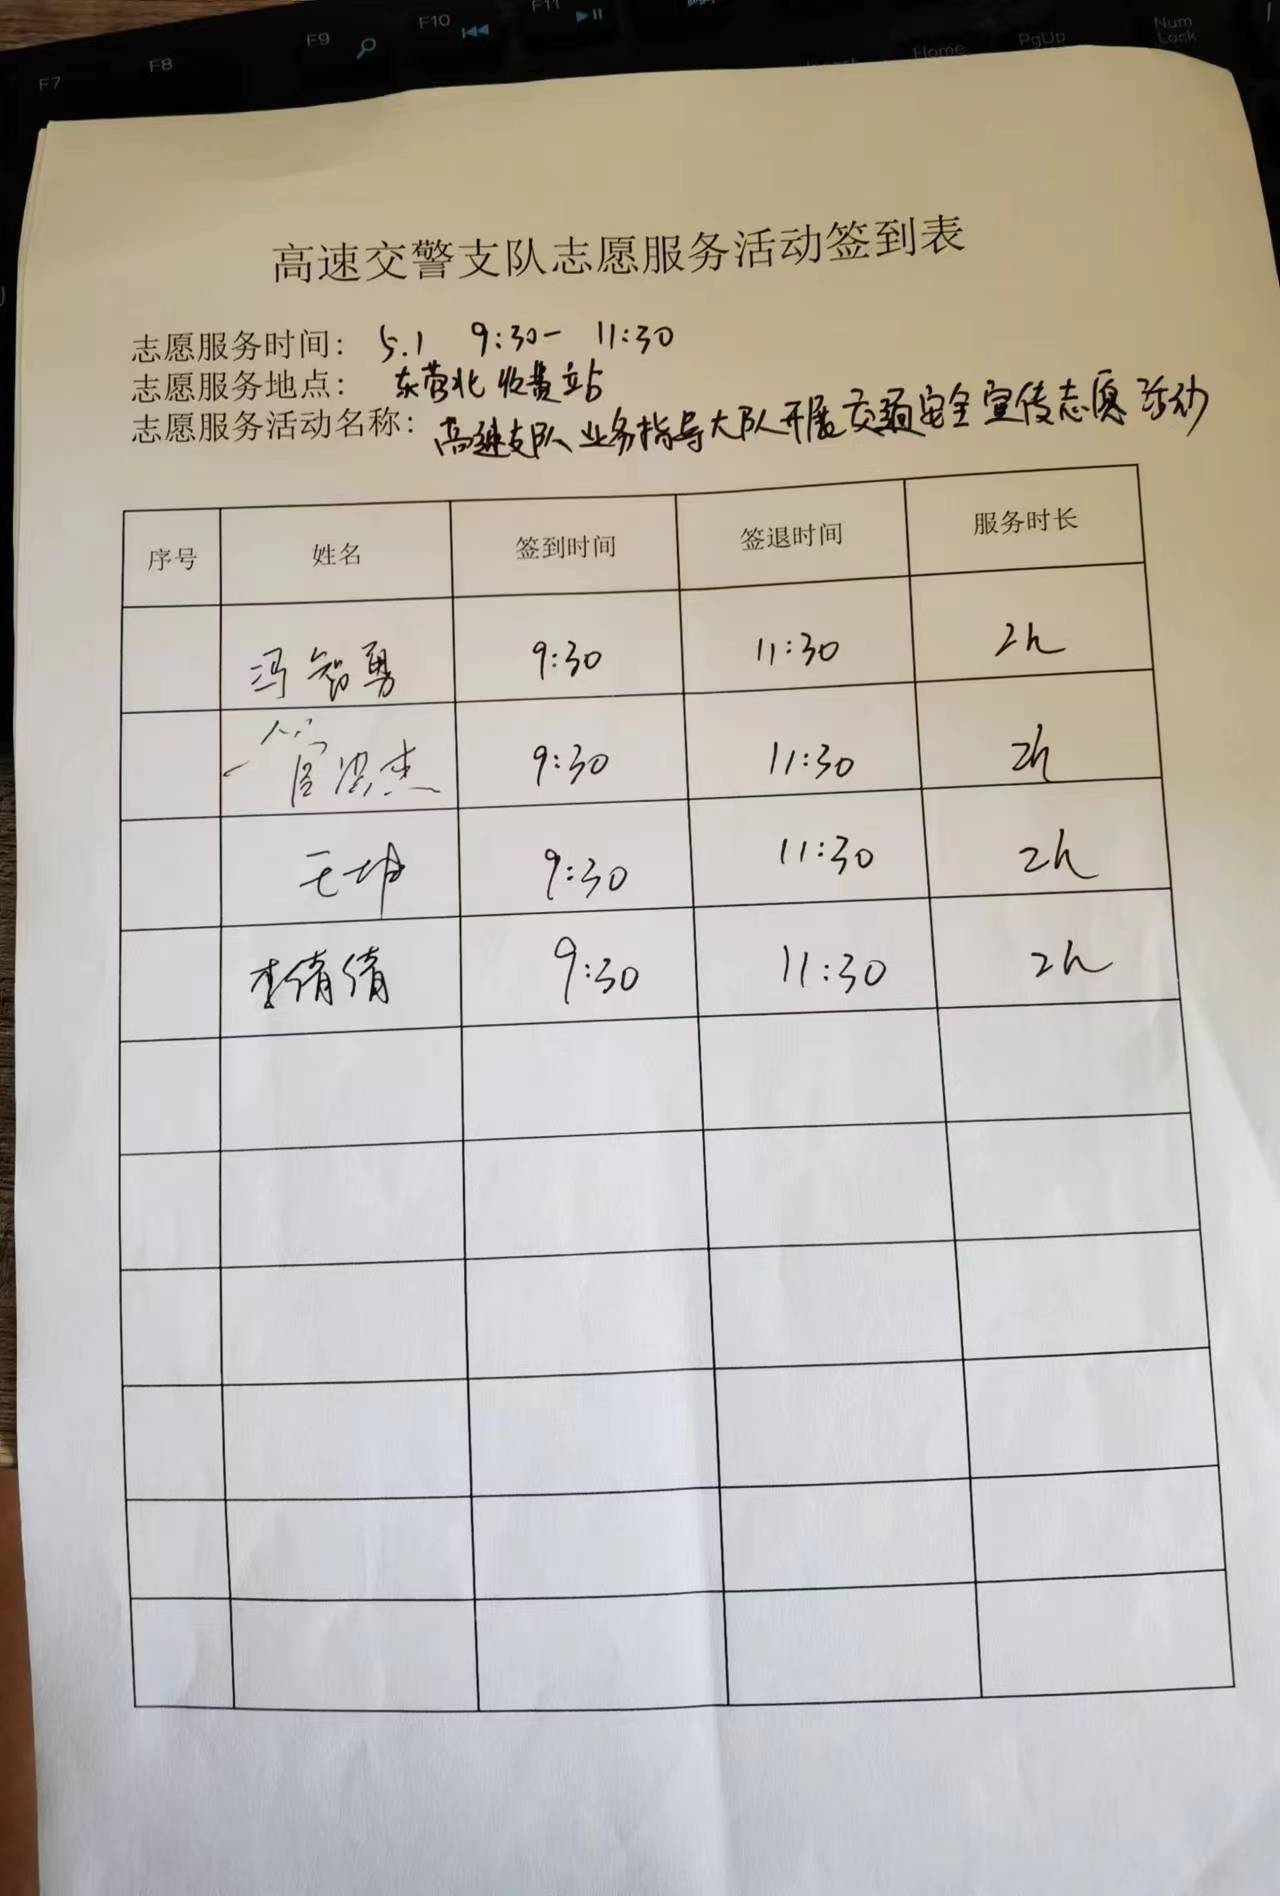 F7 F8 F9 F10 F11 Home PgUp Num Lock
高速交警支队志愿服务活动签到表
志愿服务时间： 5.1 9:30- 11:30
志愿服务地点： 东营北收费站
志愿服务活动名称： 高速支队业务指导大队开展交通安全宣传志愿活动
序号 姓名 签到时间 签退时间 服务时长
冯智勇 9:30 11:30 2h
管洪杰 9:30 11:30 2h
王坤 9:30 11:30 2h
李倩倩 9:30 11:30 2h